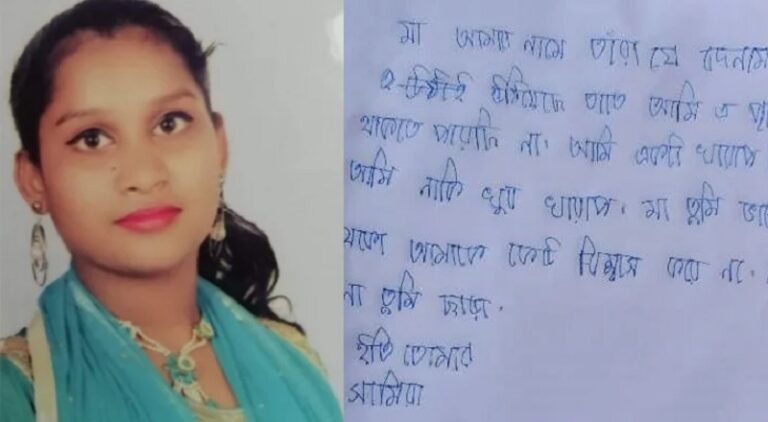 মা আমার নামে তাঁরা যে বদনাম
তাতে আমি এ
থাকতে পারছি না। আমি একটা খারাপ
আমি নাকি খুব খারাপ। মা তুমি
আমাকে কেউ বিশ্বাস করে না।
না তুমি ছাড়া।
ইতি তোমার
সামিরা